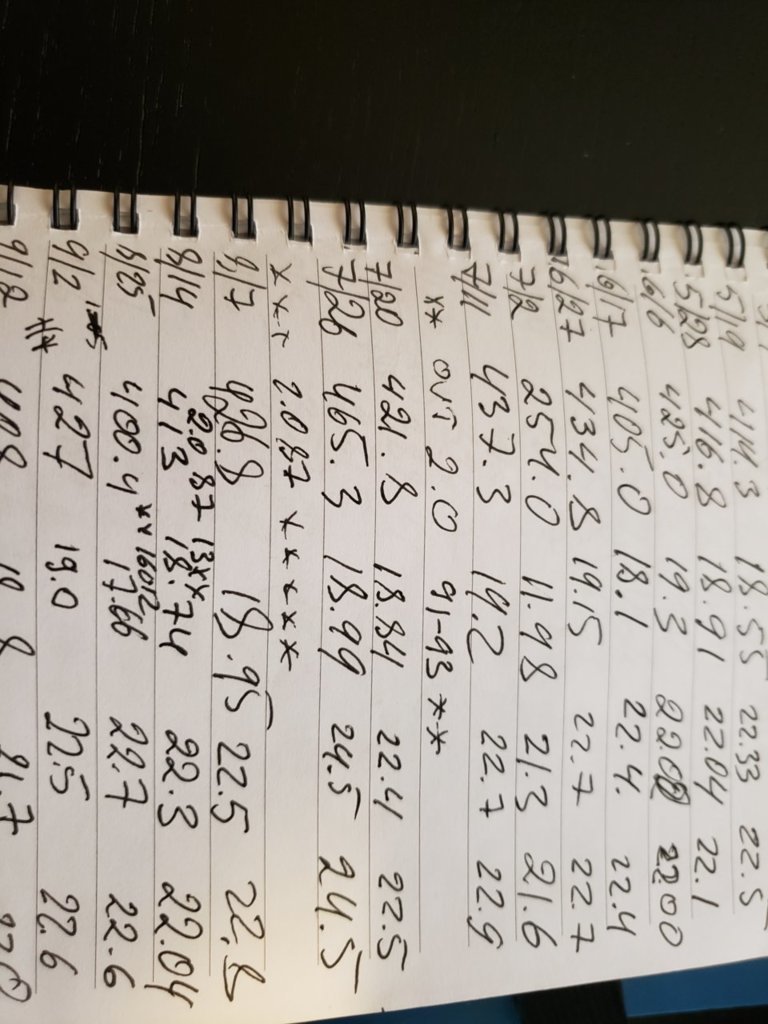 5/19 414.3 18.55 22.33 22.5
5/28 416.8 18.91 22.04 22.1
6/6 425.0 19.3 22.00 22.00
6/7 405.0 18.1 22.4. 22.4
6/27 434.8 19.15 22.7 22.7
7/2 254.0 11.98 21.3 21.6
7/11 437.3 19.2 22.7 22.9
** OUT 2.0 91-93 **
7/20 421.8 18.84 22.4 22.5
7/26 465.3 18.99 24.5 24.5
*** 2.087 *****
8/7 426.8 18.95 22.5 22.8
2.087 13**
8/14 413 18.74 22.3 22.04
**
8/25 400.4 17.66 22.7 22.6
9/2 427 19.0 22.5 22.6
9/12 408 21.7